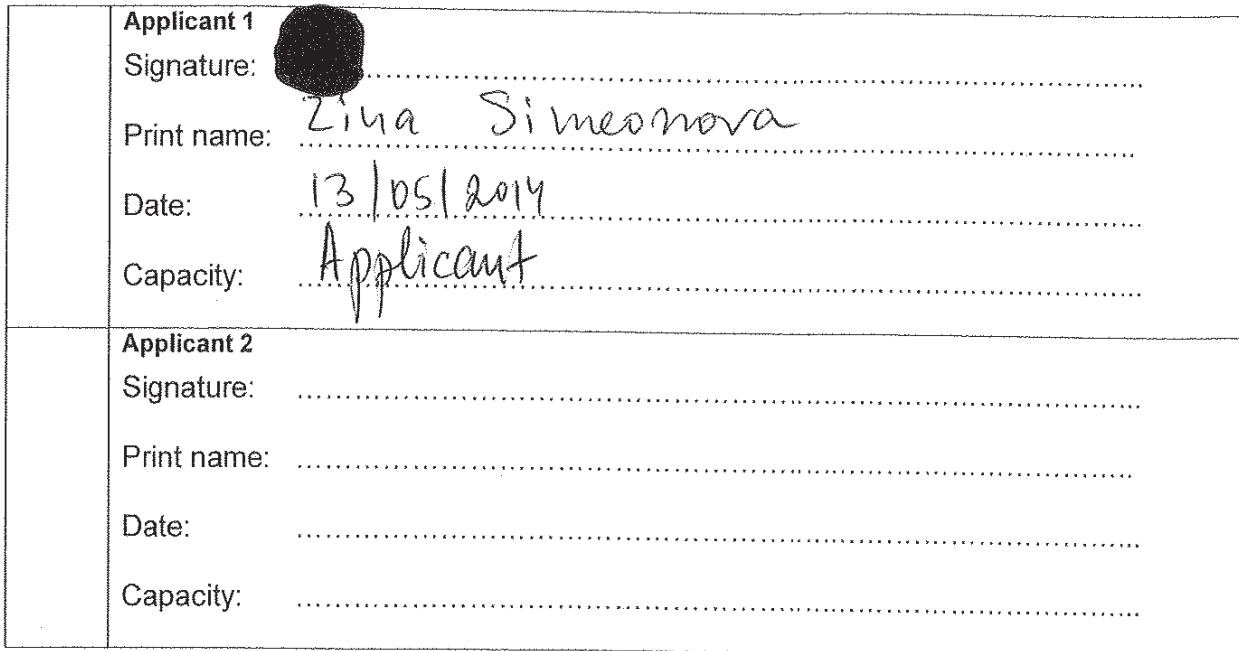 Applicant 1
Signature:
Print name: Zina Simeonova
Date: 13/05/2014
Capacity: Applicant
Applicant 2
Signature:
Print name:
Date:
Capacity: